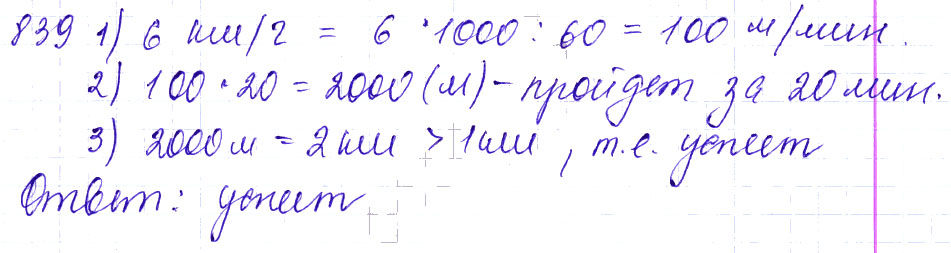 839 1) 6 км/г = 6 · 1000 : 60 = 100 м/мин.
2) 100 · 20 = 2000 (м) – пройдет за 20 мин.
3) 2000 м = 2 км > 1 км, т.е. успеет
Ответ: успеет